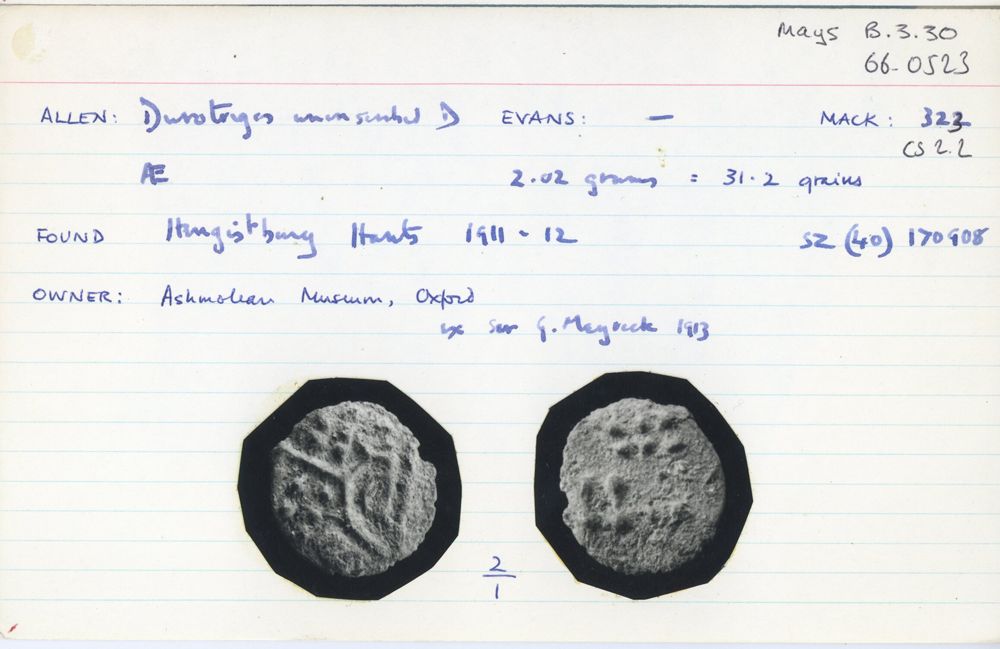 Mays B.3.30
66-0523
ALLEN: Durotriges uninscribed D EVANS: — MACK: 323
CS 2.2
Æ 2.02 grams = 31.2 grains
FOUND Hengistbury Hants 1911-12 SZ (40) 170908
OWNER: Ashmolean Museum, Oxford
ex Sir G. Meyrick 1913
2
1